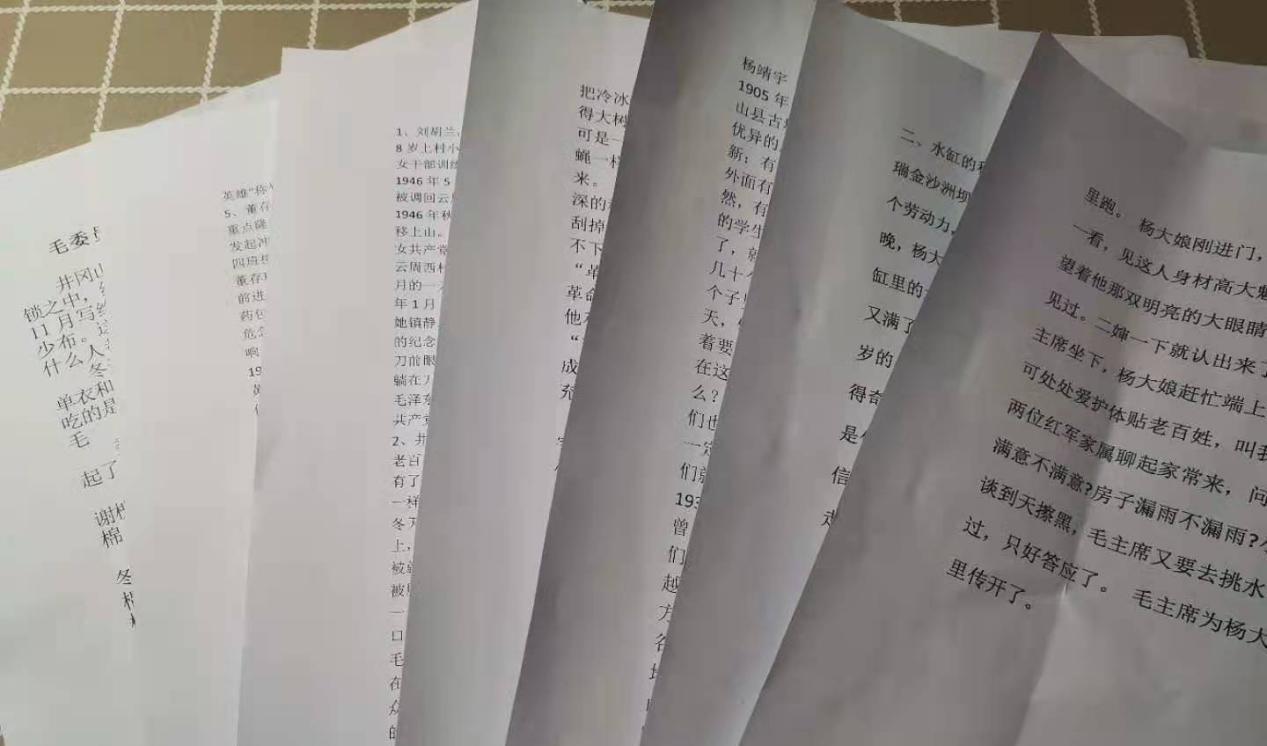 毛委员
井冈山
锁之中，
口月写
少布。
什么人
冬
单衣和
吃的是
毛
起了
谢
棉
冬
英雄"称
5、董存
重点隆
发起冲
四班
董存
前进
药包
危
响
19
1、刘胡兰
8 岁上村小
女干部训练
1946 年 5
被调回云周
1946 年秋
移上山。
女共产党
云周西村
月的一
年 1 月
她镇静
的纪念
刀前眼
躺在刀
毛泽东
共产党
2、井
老百
有了
一样
冬天
上，
被
被
一
口
毛
在
众
的
把冷冰
得大树
可是一
蝇一样
来。
深的
刮掉
不下
"革
革命
他
"
成
杨靖宇
1905 年
山县古
优异的
新；有
外面有
然，有
的学生
了，就
几十
个子
天，
着要
在这
么？
们也
一定
们就
193
曾
们
越
方
名
二、水缸的
瑞金沙洲坝
个劳动力，
晚，杨大
缸里的
又满了
岁的
得奇
是
信
走
里跑。 杨大娘刚进门，
一看，见这人身材高大魁
望着他那双明亮的大眼睛
见过。二婶一下就认出来了
主席坐下，杨大娘赶忙端上
可处处爱护体贴老百姓，叫我
两位红军家属聊起家常来，问
满意不满意?房子漏雨不漏雨?
谈到天擦黑，毛主席又要去挑水
过，只好答应了。 毛主席为杨大
里传开了。